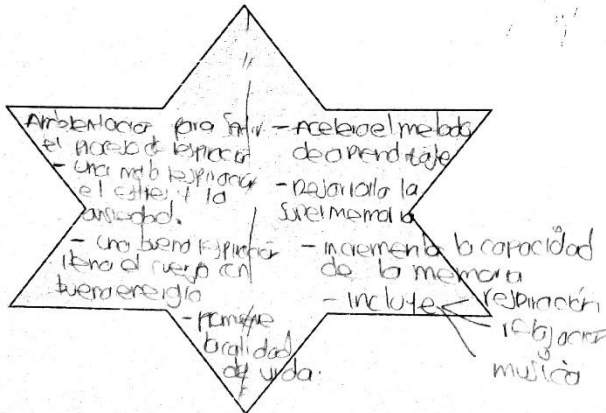 Ambientación para
el proceso de respiración
- una mala respiración
el estres y la
ansiedad.
- una buena respiración
llena el cuerpo con
buena energia
la calidad
de vida.
- Acelera el metodo
de aprendizaje
- Desarrolla la
super memoria
- incrementa la capacidad
de la memoria
- incluye respiración
relajación
musica